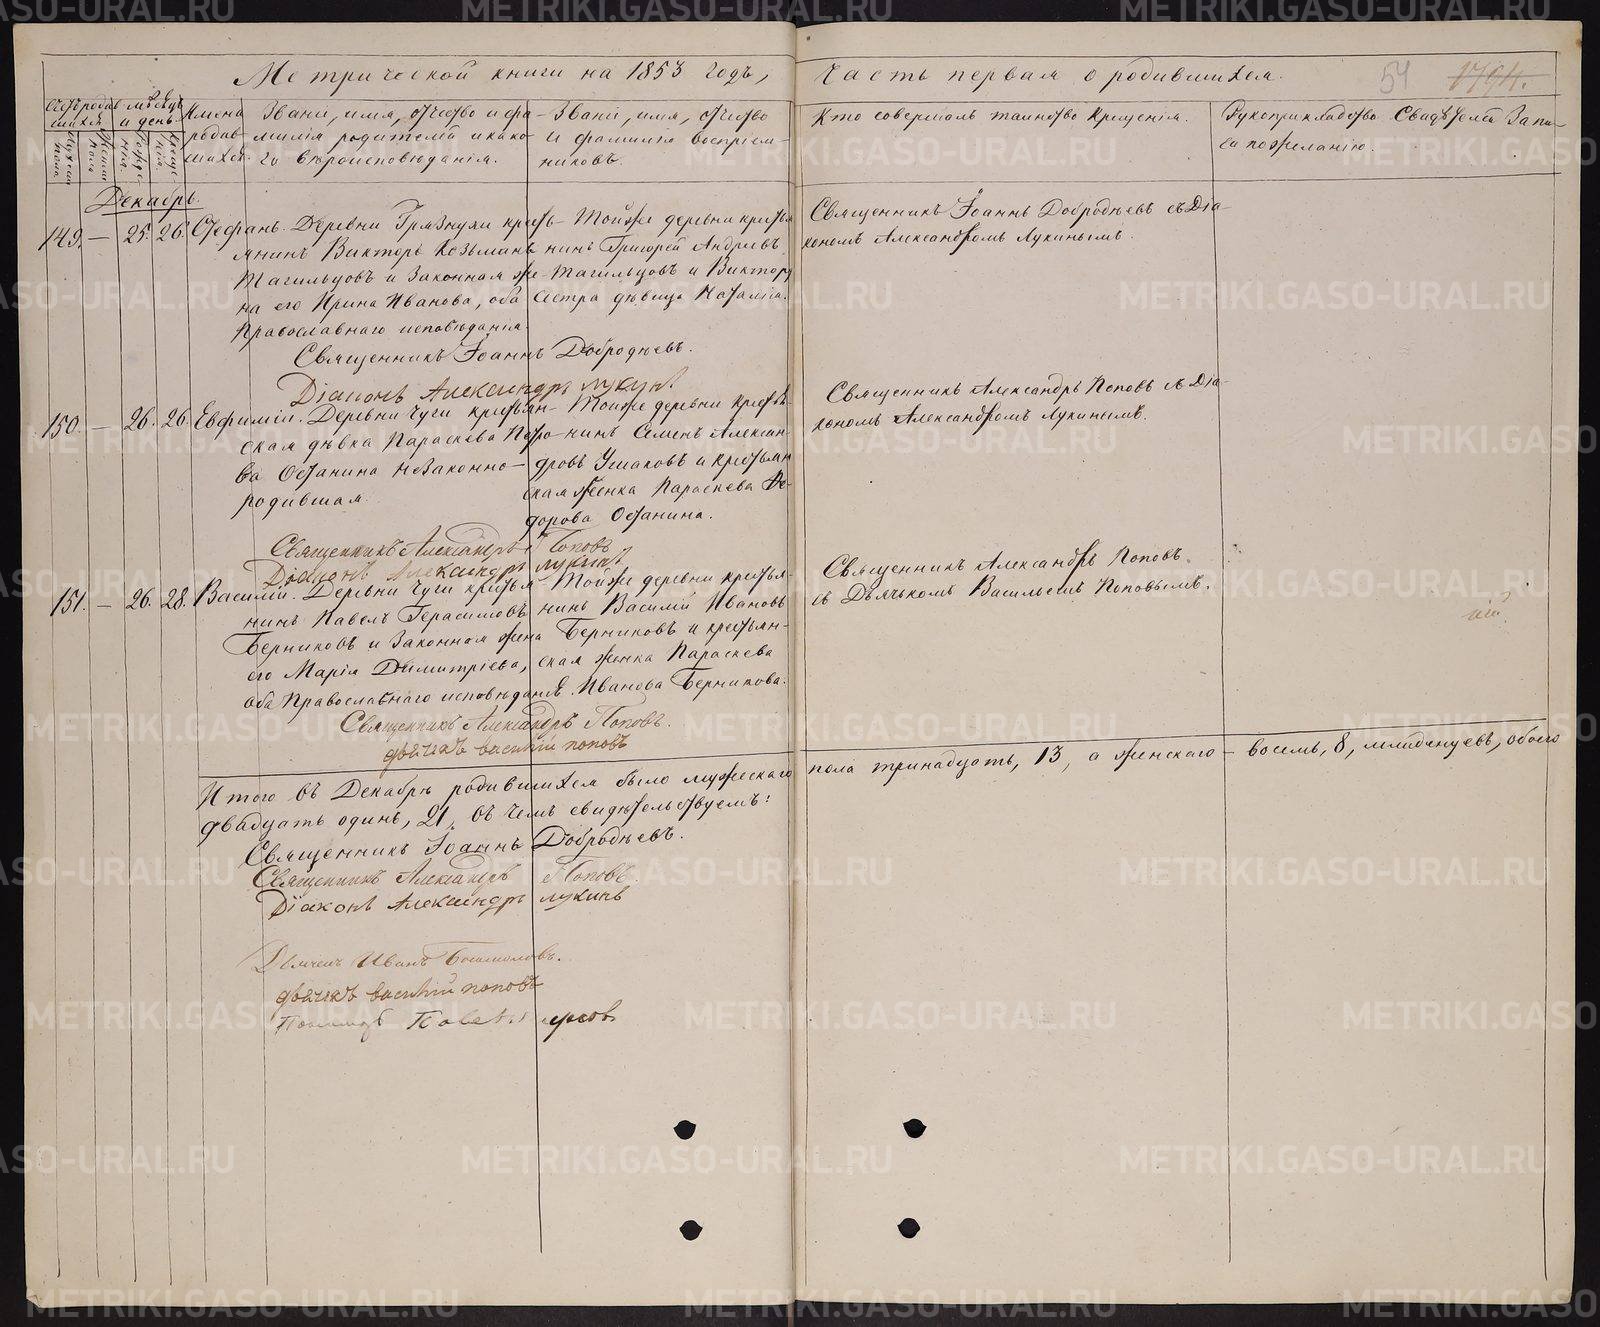 Метрической книги на 1853 годъ,
Часть первая о родившихся.
54
1794.
Счетъ родившихся.
Мѣсяцъ и день
Имена родившихся.
Званіе, имя, отчество и фамилія родителей и какого вѣроисповѣданія.
Званіе, имя, отчество и фамилію воспріемниковъ.
Кто совершалъ таинство крещенія.
Рукоприкладство свидѣтелей записи по желанію.
Мужеска пола
Женска пола
Рожденія.
Крещенія.
Декабрь.
149. — 25. 26. Стефанъ.
Деревни Грязнухи кресть-
янинъ Викторъ Козьминъ
Тагильцовъ и законная же-
на его Ирина Иванова, оба
Православнаго исповѣданія.
Тойже деревни крестья
нинъ Григорей Андреевъ
Тагильцовъ и Виктора
сестра дѣвица Наталія.
Священникъ Іоаннъ Добродѣевъ съ Діа-
кономъ Александромъ Лукинымъ.
Священникъ Іоаннъ Добродѣевъ.
Діаконъ Александръ Лукинъ
150. — 26. 26. Евфимій.
Деревни Чуги крестьян-
ская дѣвка Параскева Петро-
ва Останина незаконно-
родившая.
Тойже деревни кресть-
нинъ Семенъ Алексан-
дровъ Ушаковъ и крестьян
ская женка Параскева Фе-
дорова Останина.
Священникъ Александръ Поповъ съ Діа-
кономъ Александромъ Лукинымъ.
Священникъ Александръ Поповъ
Діаконъ Александръ Лукинъ
151. — 26. 28. Василій.
Деревни Чуги крестья
нинъ Павелъ Герасимовъ
Берниковъ и законная жена
его Марія Димитріева,
оба Православнаго исповѣданія.
Тойже деревни крестья-
нинъ Василій Ивановъ
Берниковъ и крестьян-
ская женка Параскева
Иванова Берникова.
Священникъ Александръ Поповъ
съ Дьячькомъ Васильемъ Поповымъ.
Священникъ Александръ Поповъ.
дьячекъ василій поповъ
Итого въ Декабрѣ родившихся было мужескаго пола тринадцать, 13, а женскаго — восемь, 8, младенцевъ, обоего
двадцать одинъ, 21, въ чемъ свидѣтельствуемъ:
Священникъ Іоаннъ Добродѣевъ.
Священникъ Александръ Поповъ.
Діаконъ Александръ Лукинъ
Дьячекъ Иванъ
дьячекъ василій поповъ